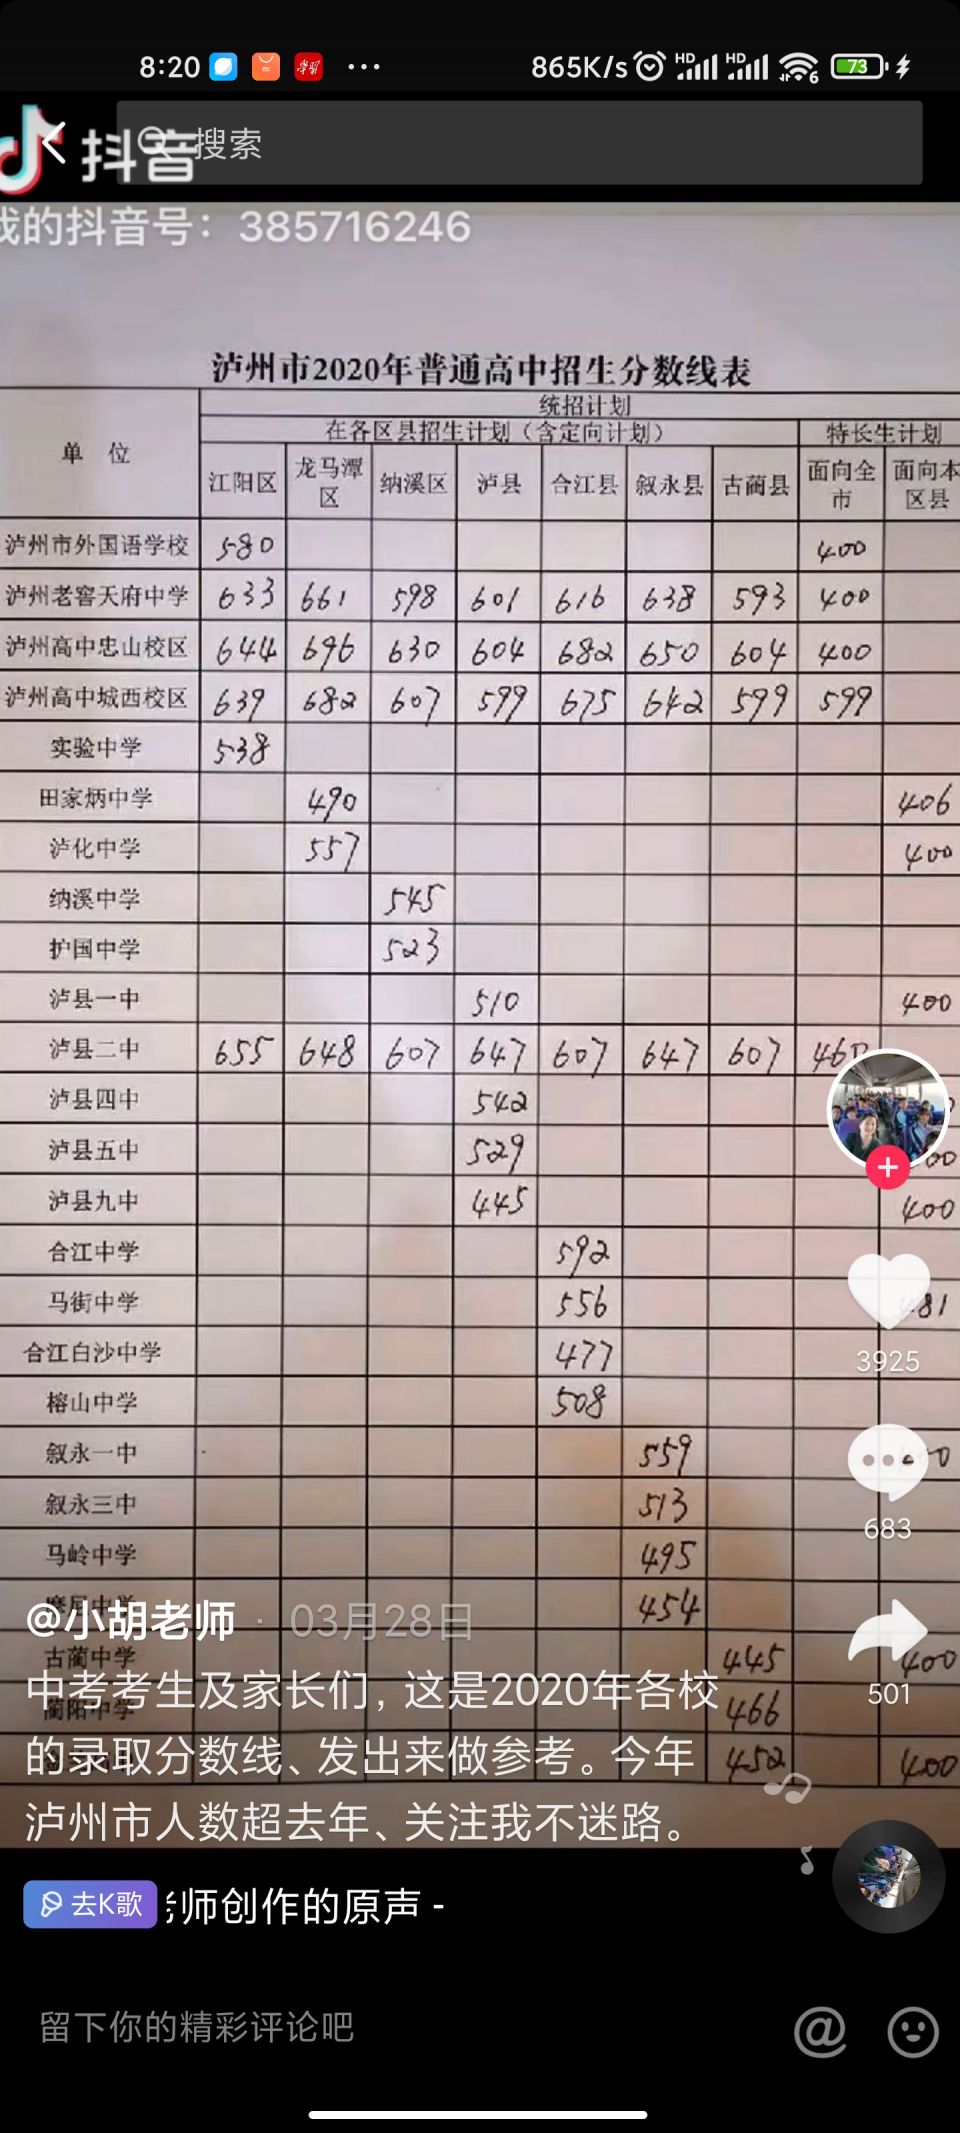 8:20
865K/s
HD
HD
6
73
抖音
搜索
我的抖音号：385716246
泸州市2020年普通高中招生分数线表
单 位
统招计划
在各区县招生计划（含定向计划）
特长生计划
江阳区 龙马潭区 纳溪区 泸县 合江县 叙永县 古蔺县 面向全市 面向本区县
泸州市外国语学校 580 400
泸州老窖天府中学 633 661 598 601 616 638 593 400
泸州高中忠山校区 644 696 630 604 682 650 604 400
泸州高中城西校区 639 682 607 599 675 642 599 599
实验中学 538
田家炳中学 490 406
泸化中学 557 400
纳溪中学 545
护国中学 523
泸县一中 510 400
泸县二中 655 648 607 647 607 647 607
泸县四中 542
泸县五中 529
泸县九中 445 400
合江中学 592
马街中学 556
合江白沙中学 477
榕山中学 508
叙永一中 559
叙永三中 513
马岭中学 495
454
古蔺中学 445 400
蔺阳中学 466
452 400
3925
683
501
@小胡老师 · 03月28日
中考考生及家长们，这是2020年各校
的录取分数线、发出来做参考。今年
泸州市人数超去年、关注我不迷路。
去K歌
师创作的原声 -
留下你的精彩评论吧